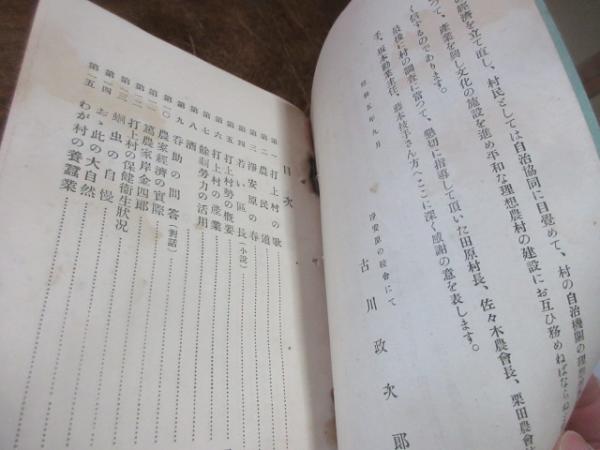 の經濟を立て直し、村民としては自治協同に目覺めて、村の自治機關の理想
つて、產業を圖し文化の施設を進め平和な理想農村の建設にお互ひ務めねばならぬ
く信ずるのであります。
最後に村の調査に當つて、懇切に指導して頂いた田原村長、佐々木農會長、栗田農會
手、坂本勸業主任、藤本技手さん方へここに深く感謝の意を表します。
昭和五年九月
淨安原の校舍にて
古川政次郎
目次
第一 打上村の歌
第二 農民道
第三 淨安原の春
第四 若い區長(小說)
第五 打上村勢の槪要
第六 打上村の產業
第七 餘剩勞力の活用
第八 酒
第九 吞助の問答(對話)
第一〇 農家經濟の實際
第一一 篤農家岸金四郎
第一二 打上村の保健衞生狀況
第一三 蛔虫の自慢
第一四 おゝ此の大自然
第一五 わが村の養蠶業